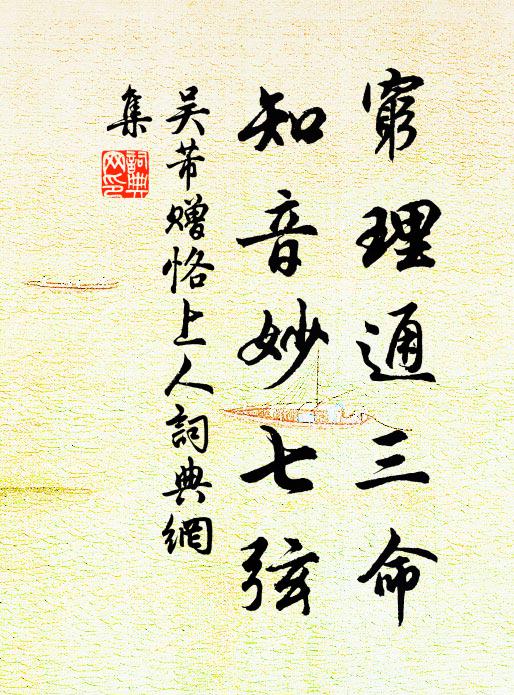 窮理通三命
知音妙七弦
吴芾赠恪上人詞典網
集
詞典网印